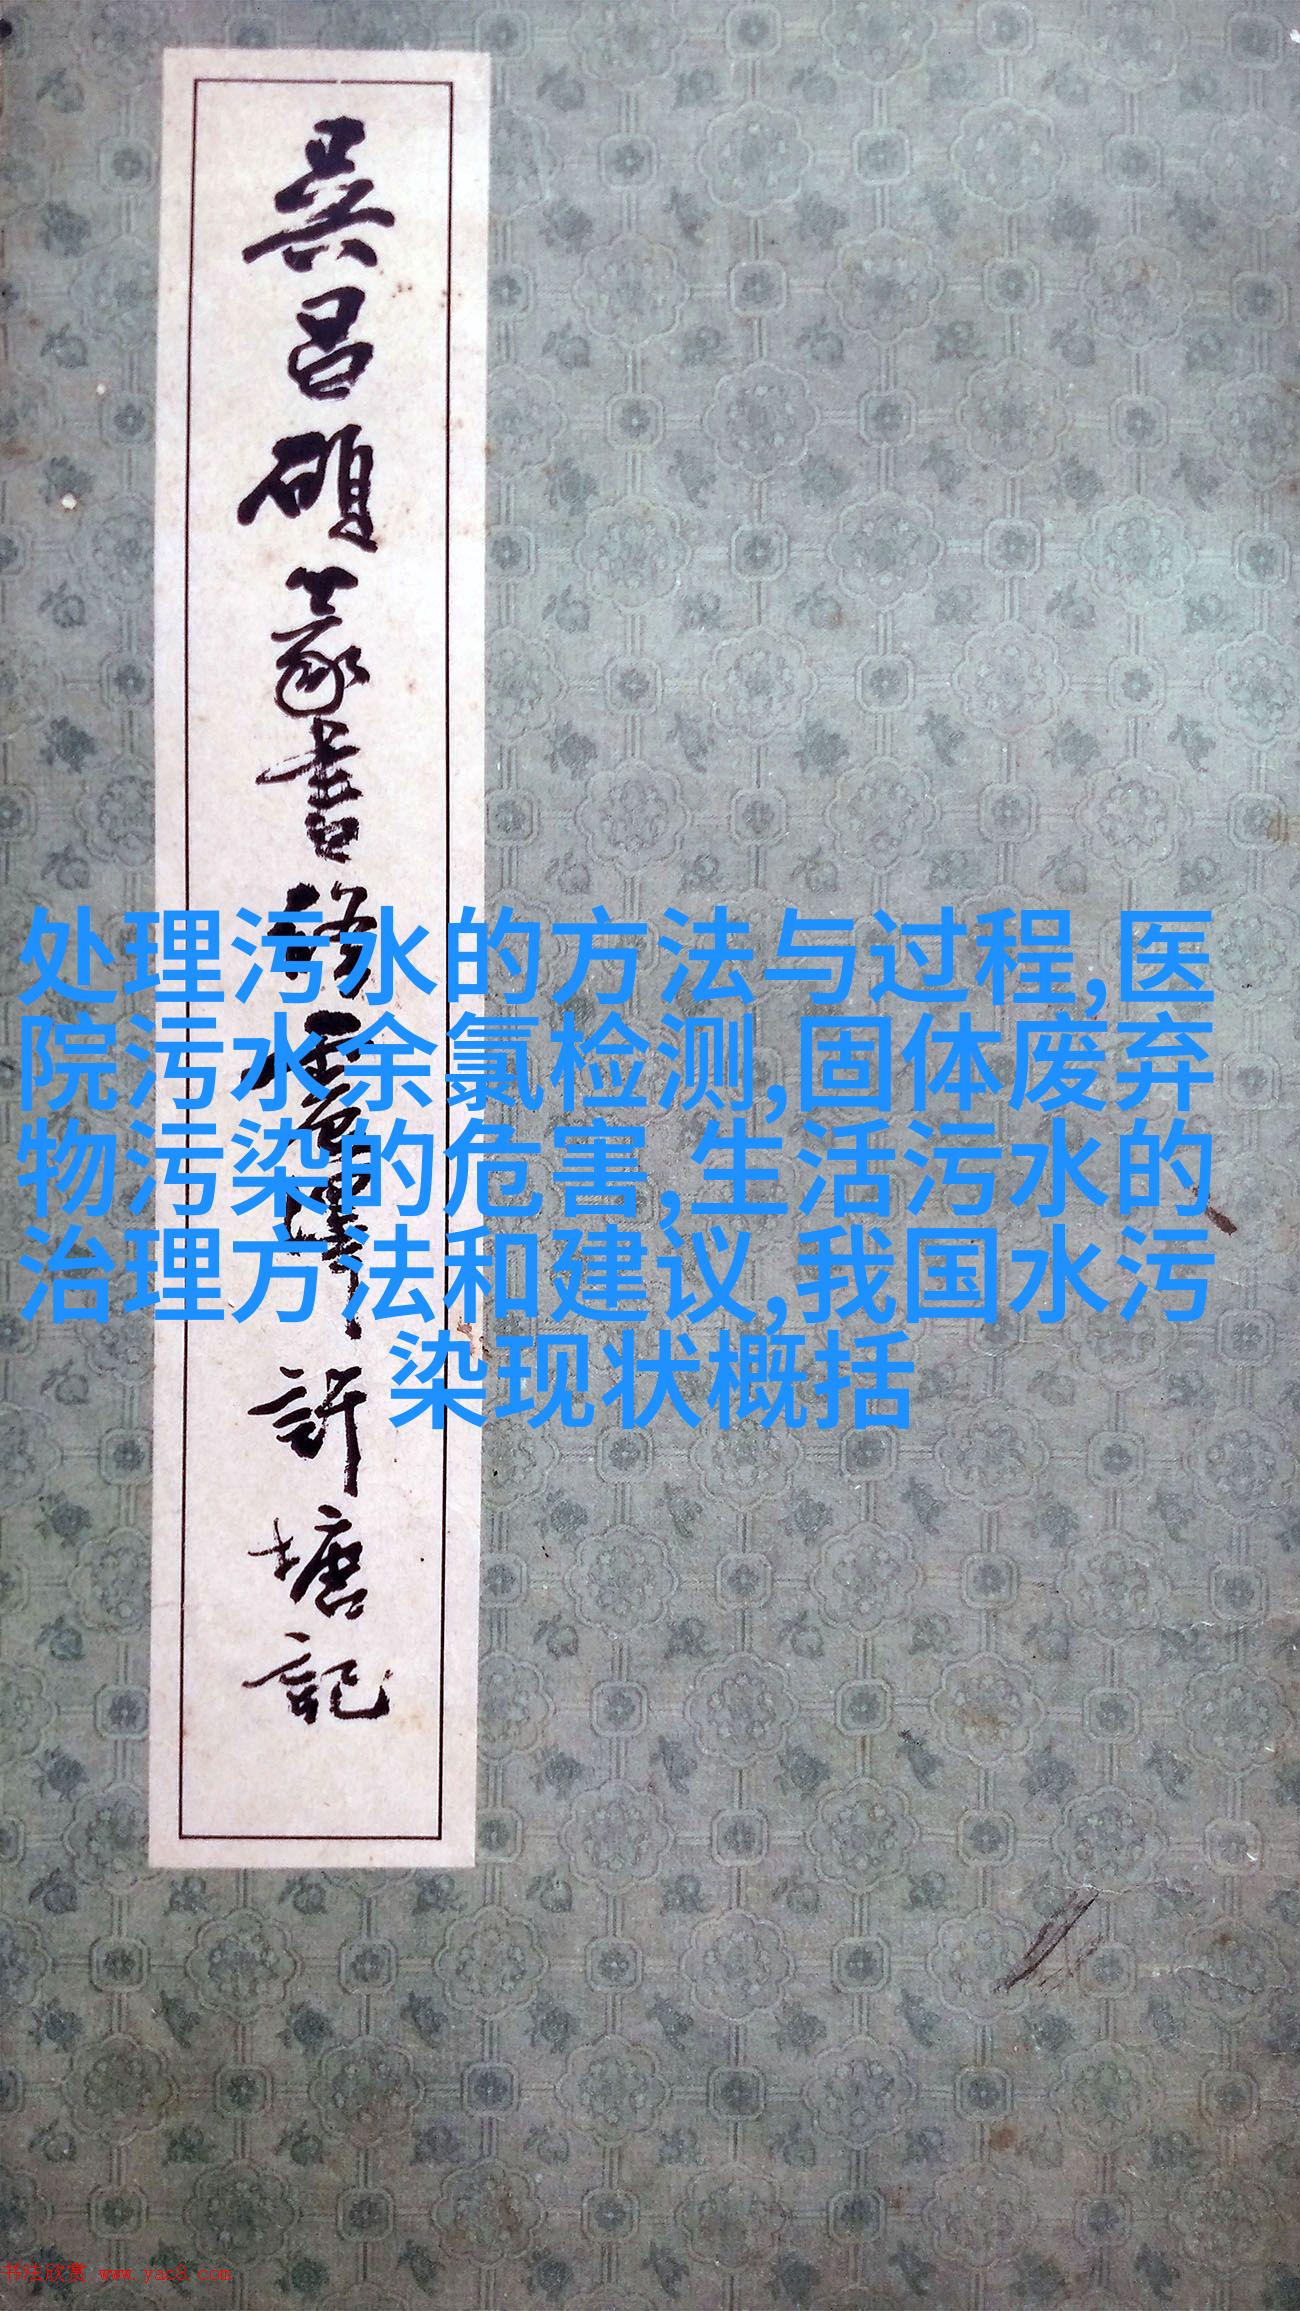 吳昌碩篆書修震澤許塘記
处理污水的方法与过程,医
院污水余氯检测,固体废弃
物污染的危害,生活污水的
治理方法和建议,我国水污
染现状概括
书法欣赏 www.yac8.com